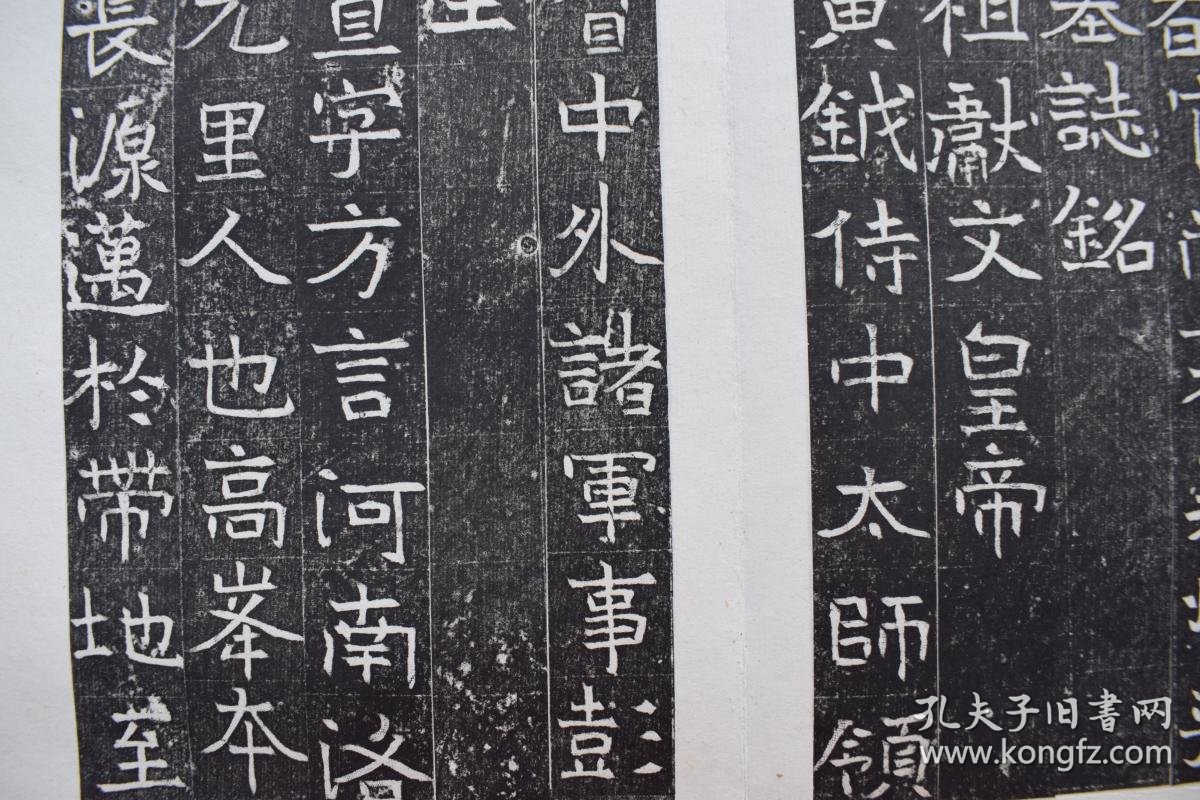 墓誌銘
祖獻文皇帝
黄鉞侍中太師領
中外諸軍事彭
王
亘字方言河南洛
光里人也高峯本
長源邁於帶地至
孔夫子旧書网
www.kongfz.com